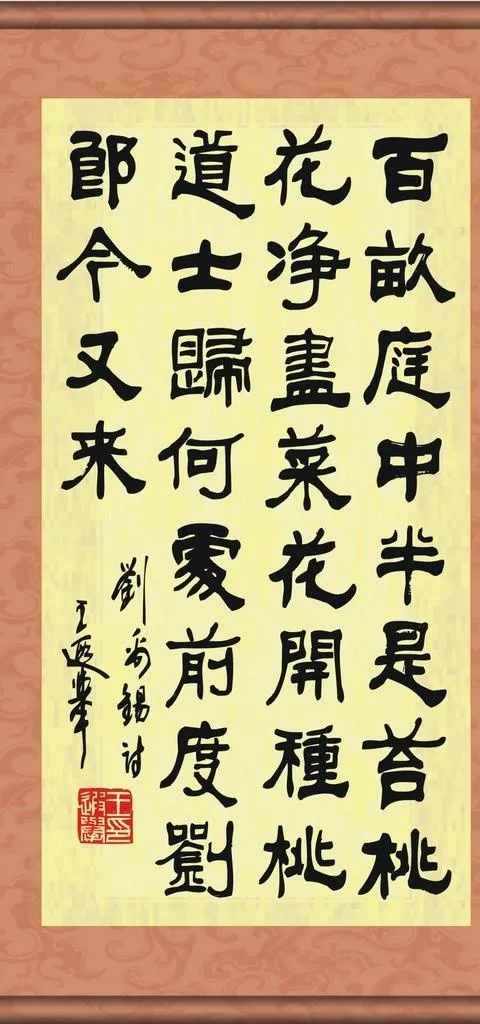 百畝庭中半是苔桃
花净盡菜花開種桃
道士歸何處前度劉
郎今又来
劉禹錫詩
王遐舉
王印
遐舉